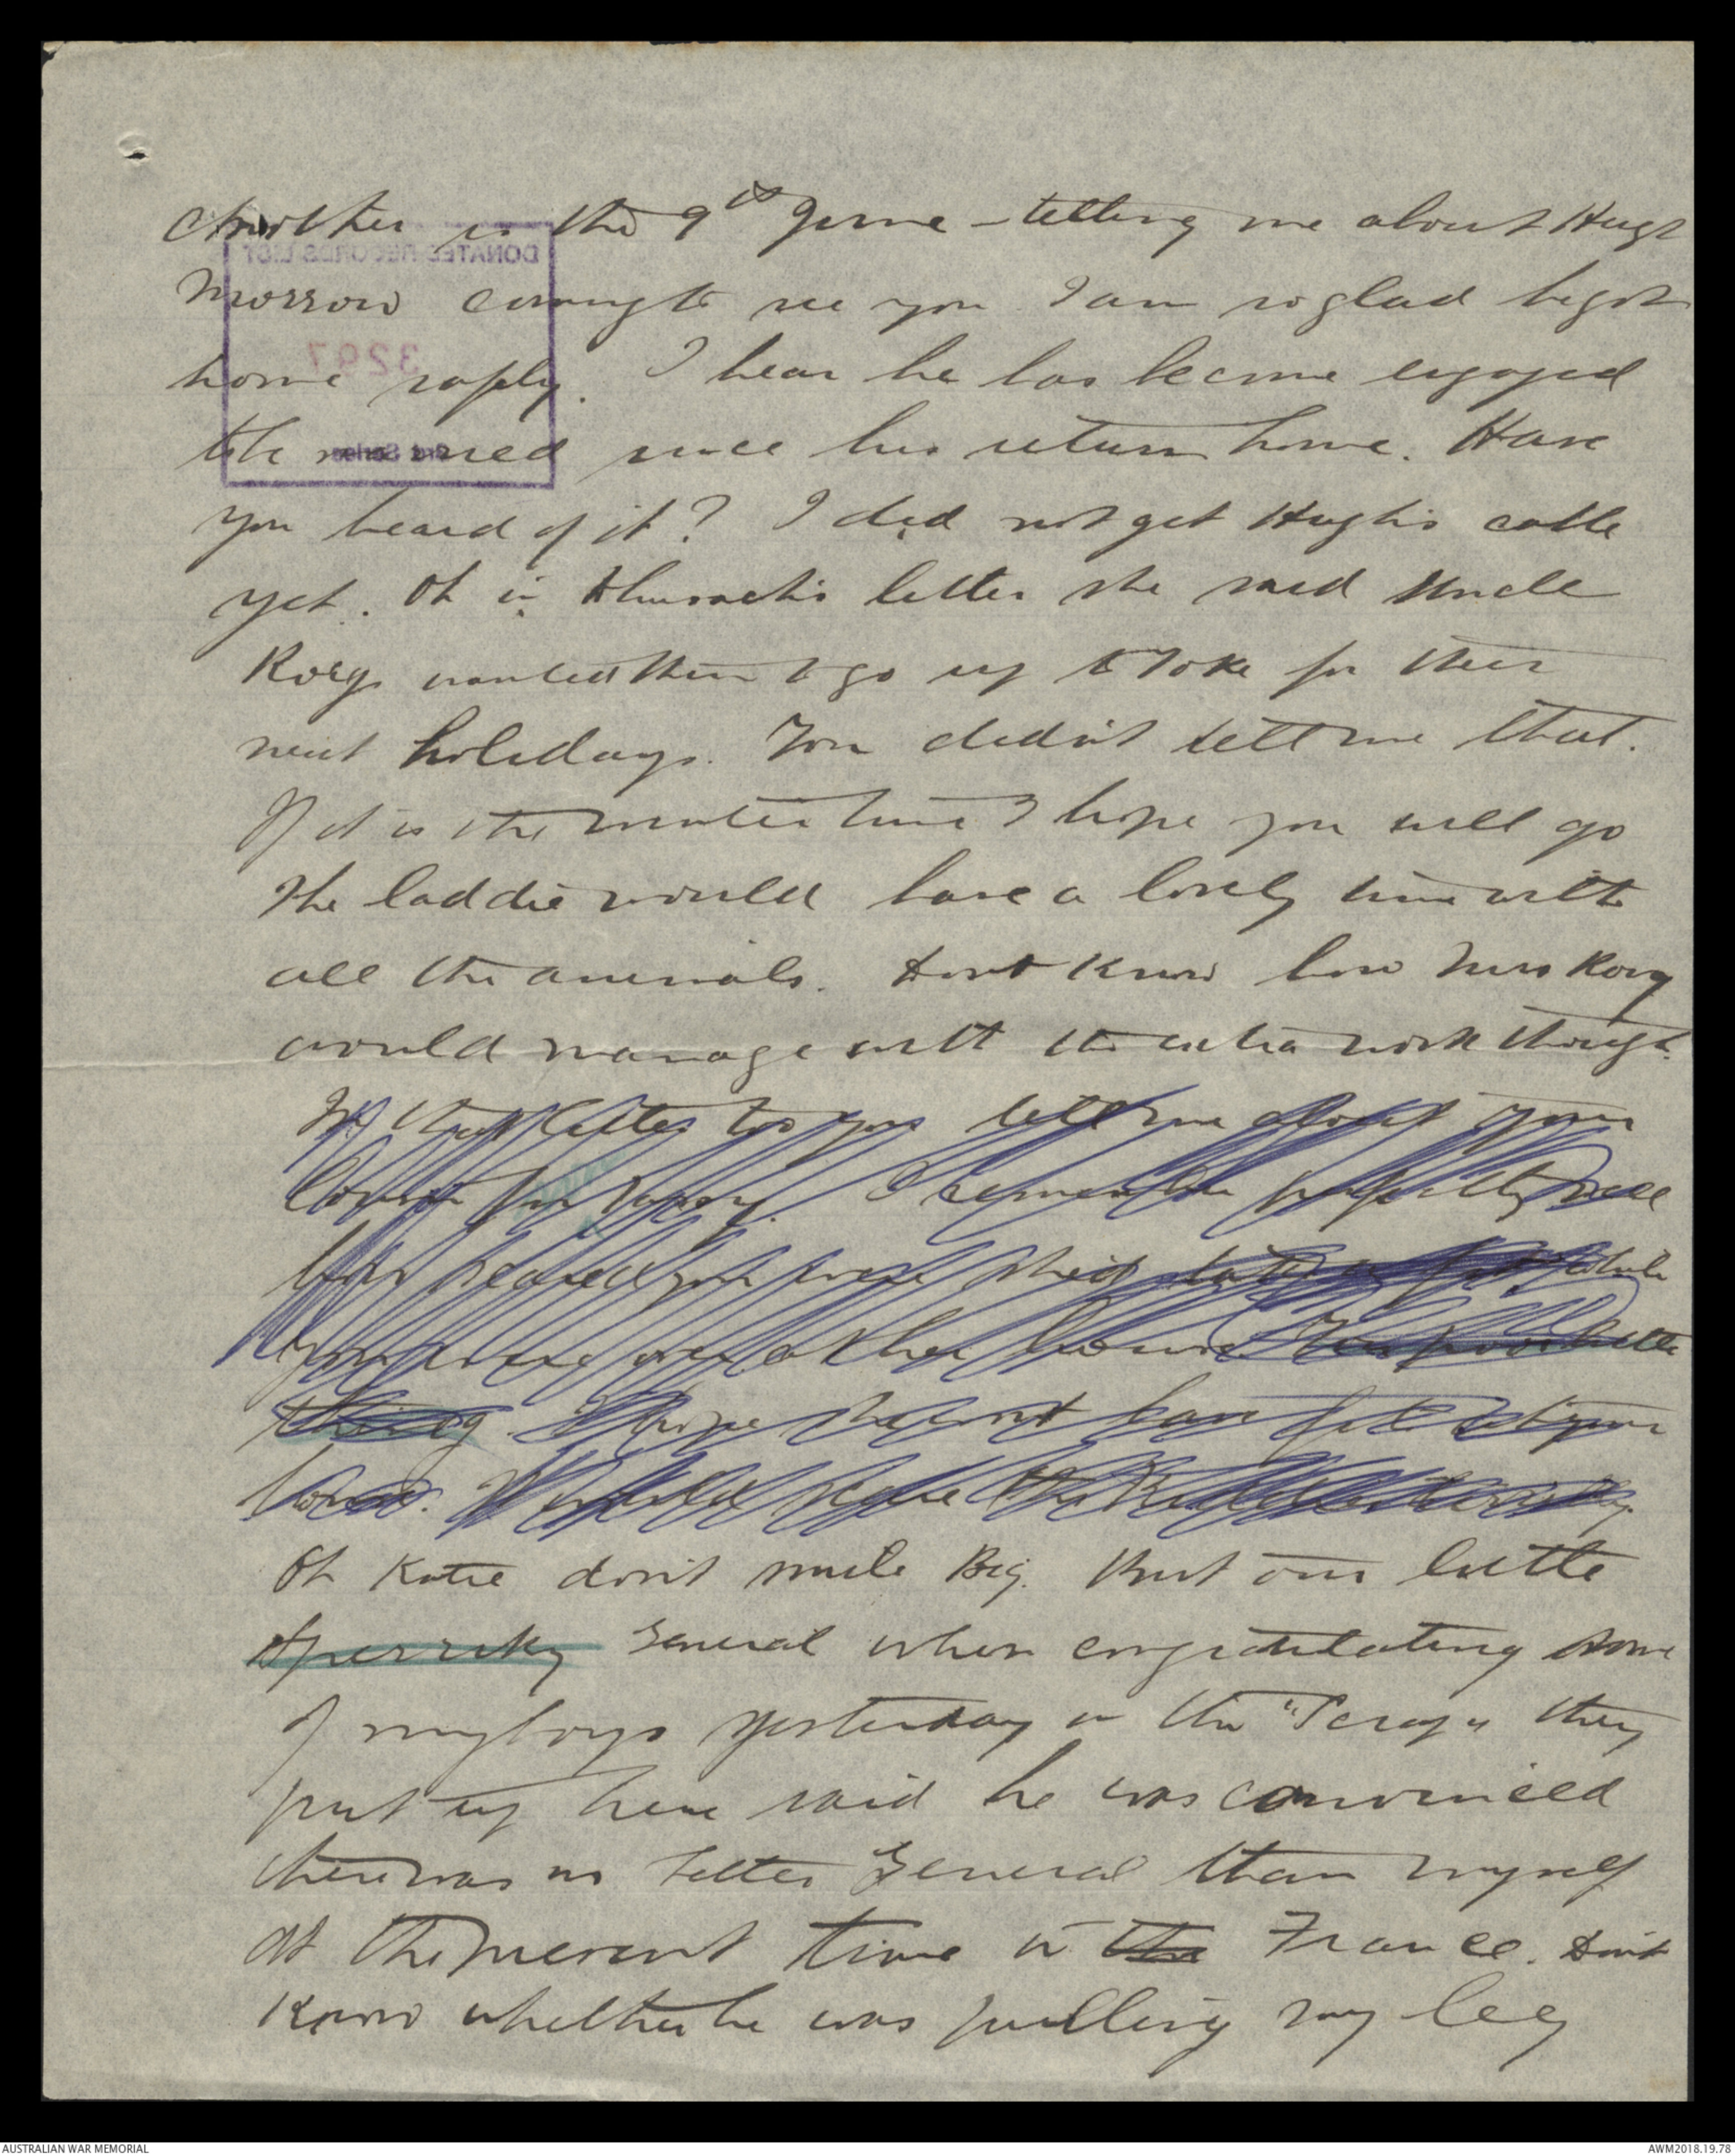 Another is the 9th June - telling me about Hugh
Morrow coming to see you I am so glad he got
home safely. I hear he has become engaged
to be married since his return home. Have
you heard of it? I did not get Hugh's cable
yet. Oh in letter she said Uncle
Rory wanted them to go up to Toke for their
next holidays. You didn't tell me that.
If it is the winter time I hope you will go
The laddie would have a lovely time with
all the animals. Don't know how Mrs Rory
would manage with the extra work though.
In that letter too you tell me about your
I remember perfectly well
you were while
you were over at her house little
thing. I hope she wont
would
Oh Katie don't smile Big. But our little
General when congratulating some
of my boys yesterday on the "Scrap" they
put up here said he was convinced
there was no better General than myself
at the present time in the France. Don't
know whether he was pulling my leg
DONATED RECORDS LIST
3297
3rd Series
AUSTRALIAN WAR MEMORIAL
AWM2018.19.78